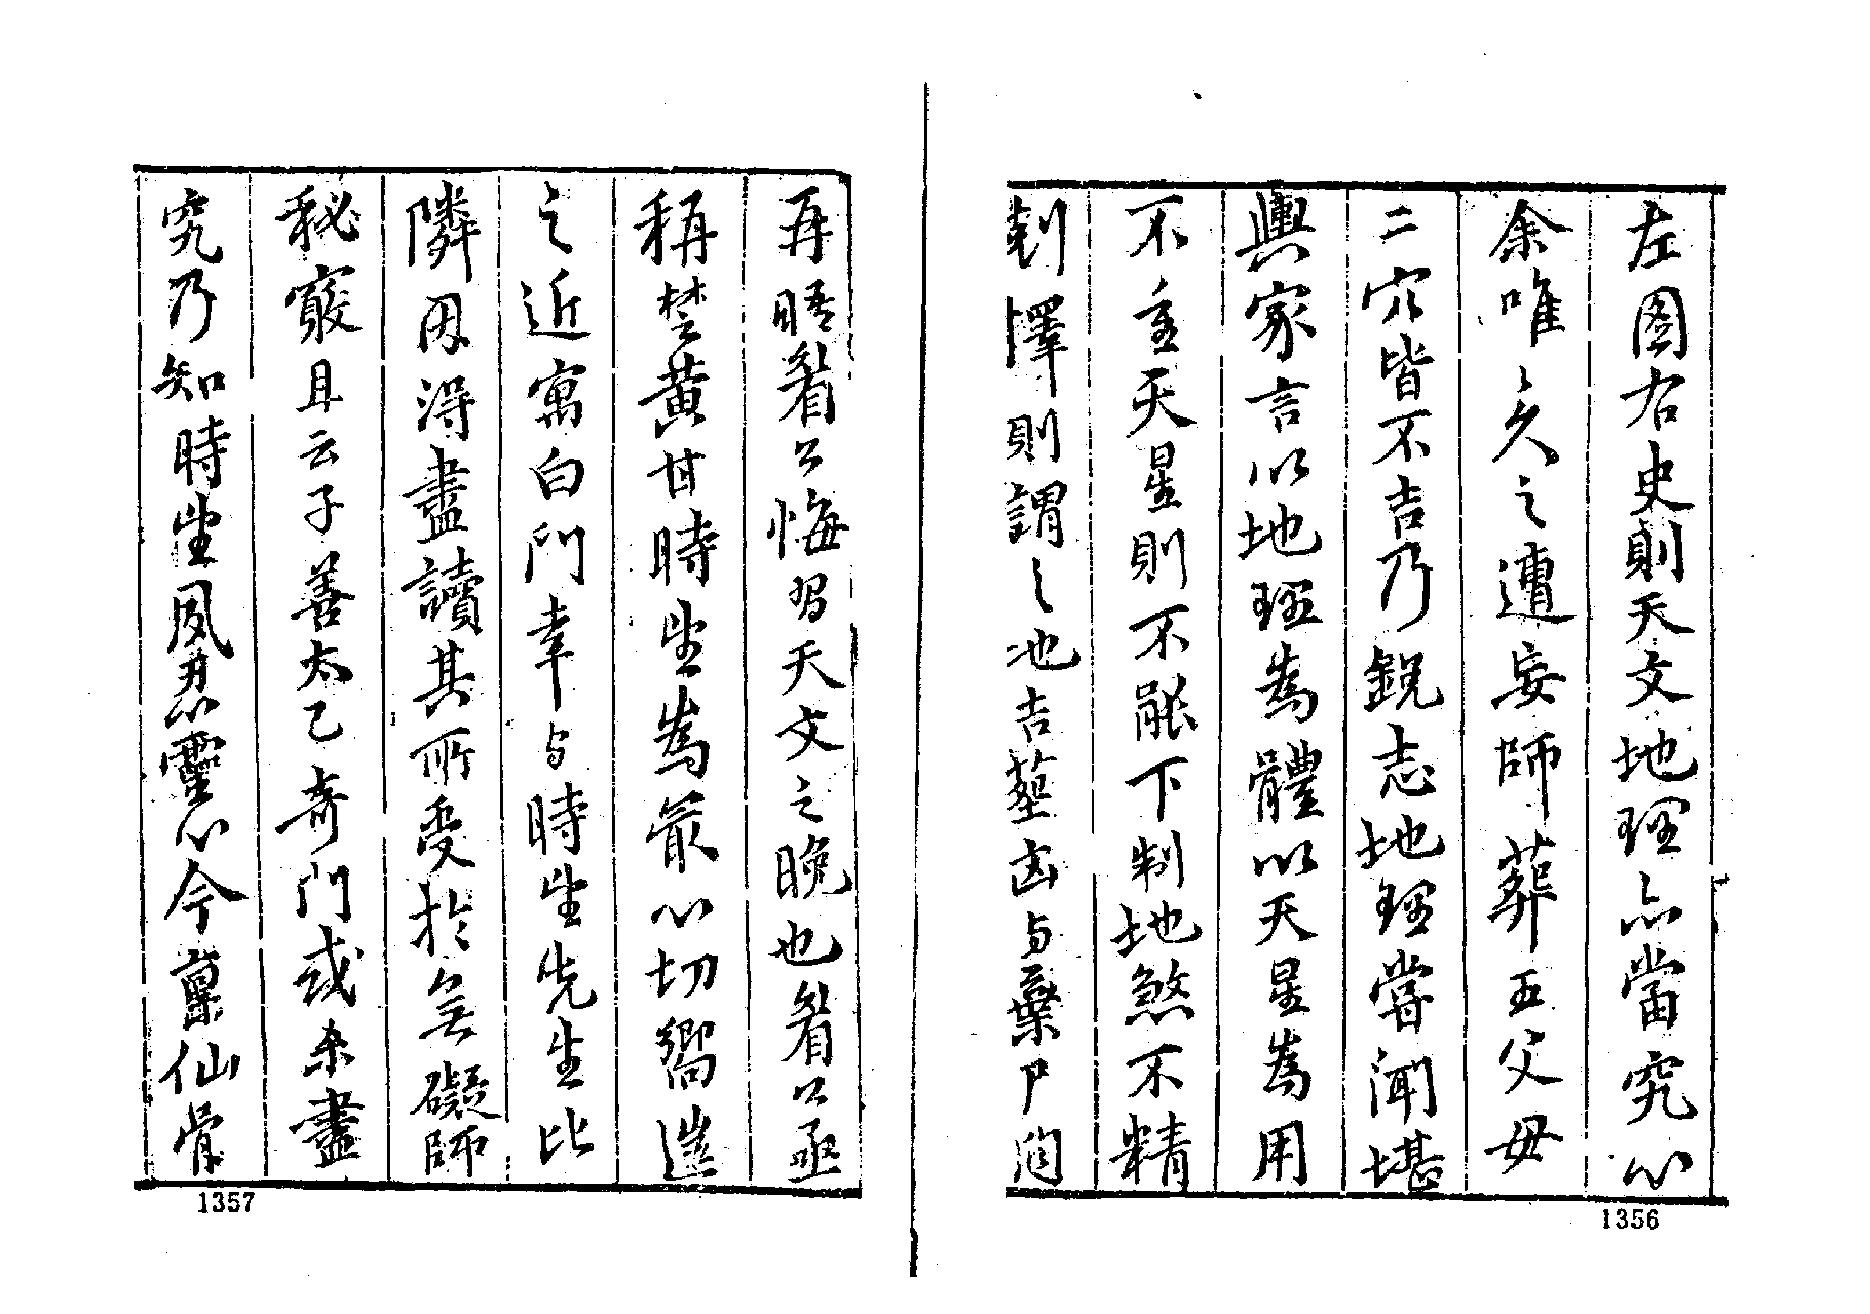 左圖右史則天文地理亦當究心
余唯唯久之遭妄師葬五父母
二穴皆不吉乃銳志地理嘗聞堪
輿家言以地理為體以天星為用
不主天星則不能下制地煞不精
剋擇則謂之地吉葬凶与棄尸同
1356
再晤眷公悔習天文之晚也眷公亟
稱楚黃甘時望為最心切嚮道
之近寓白門幸与時望先生比
隣因得盡讀其所受於無礙師
秘竅且云子善太乙奇門或未盡
究乃知時望夙慧靈心今稟仙骨
1357